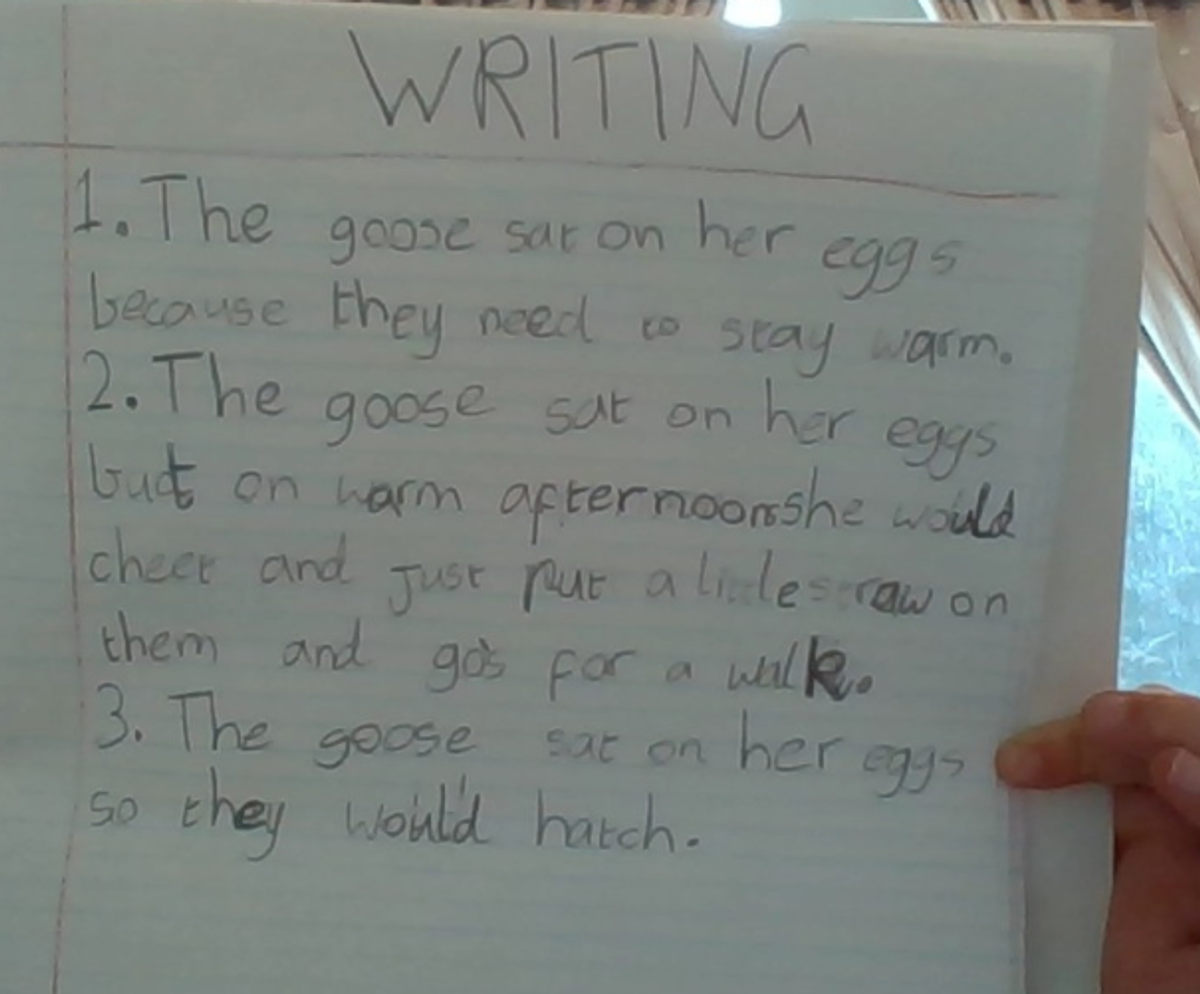 WRITING
1. The goose sat on her eggs
because they need to stay warm.
2. The goose sat on her eggs
but on warm afternoons she would
cheet and just put a little straw on
them and go's for a walk.
3. The goose sat on her eggs
so they would hatch.